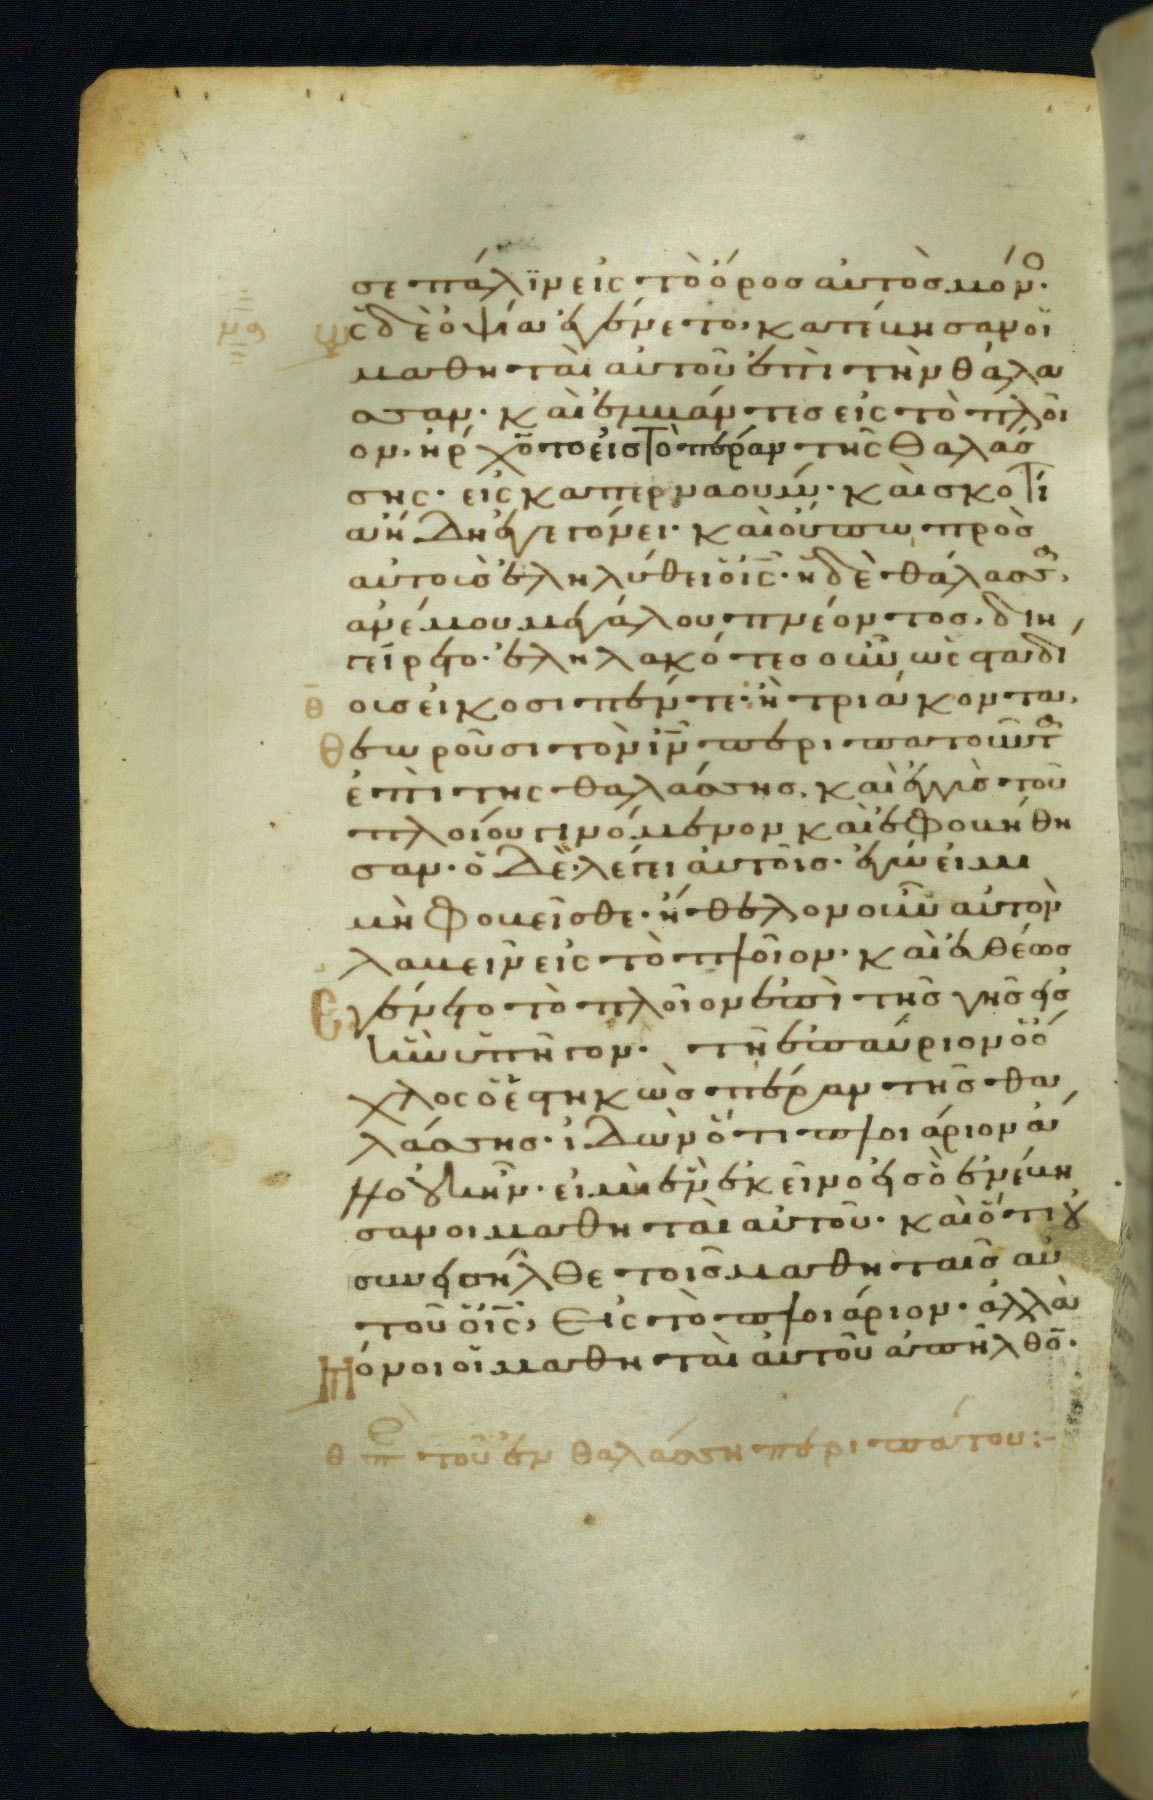 σε πάλϊν εἰς τὸ ὄρος αὐτὸς μόνο.
ὡς δὲ ὀψία ἐγένετο, κατέβησαν οἱ
μαθηταὶ αὐτοῦ ἐπὶ τὴν θάλα
σσαν. καὶ ἐμβάντες εἰς τὸ πλοῖ
ον. ἠρχο̅το εἰς τὸ πέραν τῆς θαλάσ
σης. εἰς καπερναούμ. καὶ σκοτί
α ἤδη ἐγεγόνει. καὶ οὔπω πρὸς
αὐτοὺς ἐληλύθει ὁ ι̅ς̅. ἡ δὲ θάλασσα,
ἀνέμου μεγάλου πνέοντος, διη
γείρετο. ἐληλακότες οὖν ὡς σταδί
ους εἰκοσιπέντε. ἢ τριάκοντα,
θ
θεωροῦσι τὸν ι̅ν̅ περιπατοῦντα
ἐπὶ τῆς θαλάσσης. καὶ ἐγγὺς τοῦ
πλοίου γινόμενον καὶ ἐφοβήθη
σαν. ὁ δὲ λέγει αὐτοῖς. ἐγώ εἰμι
μὴ φοβεῖσθε. ἤθελον οὖν αὐτὸν
λαβεῖν εἰς τὸ πλοῖον. καὶ εὐθέως
ἐγένετο τὸ πλοῖον ἐπὶ τῆς γῆς εἰς
ἣν ὑπῆγον. τῇ ἐπαύριον ὁ ὄ
χλος ὁ ἑστηκὼς πέραν τῆς θα
λάσσης. ἰδὼν ὅτι πλοιάριον ἄ
λλο οὐκ ἦν. εἰ μὴ ἓν ἐκεῖνο εἰς ὃ ἐνέβη
σαν οἱ μαθηταὶ αὐτοῦ. καὶ ὅτι οὐ
συνεισῆλθε τοῖς μαθηταῖς αὐ
τοῦ ὁ ι̅ς̅, εἰς τὸ πλοιάριον. ἀλλὰ
μόνοι οἱ μαθηταὶ αὐτοῦ ἀπῆλθο̅.
θ περ τοῦ ἐν θαλάσση περιπάτου:-